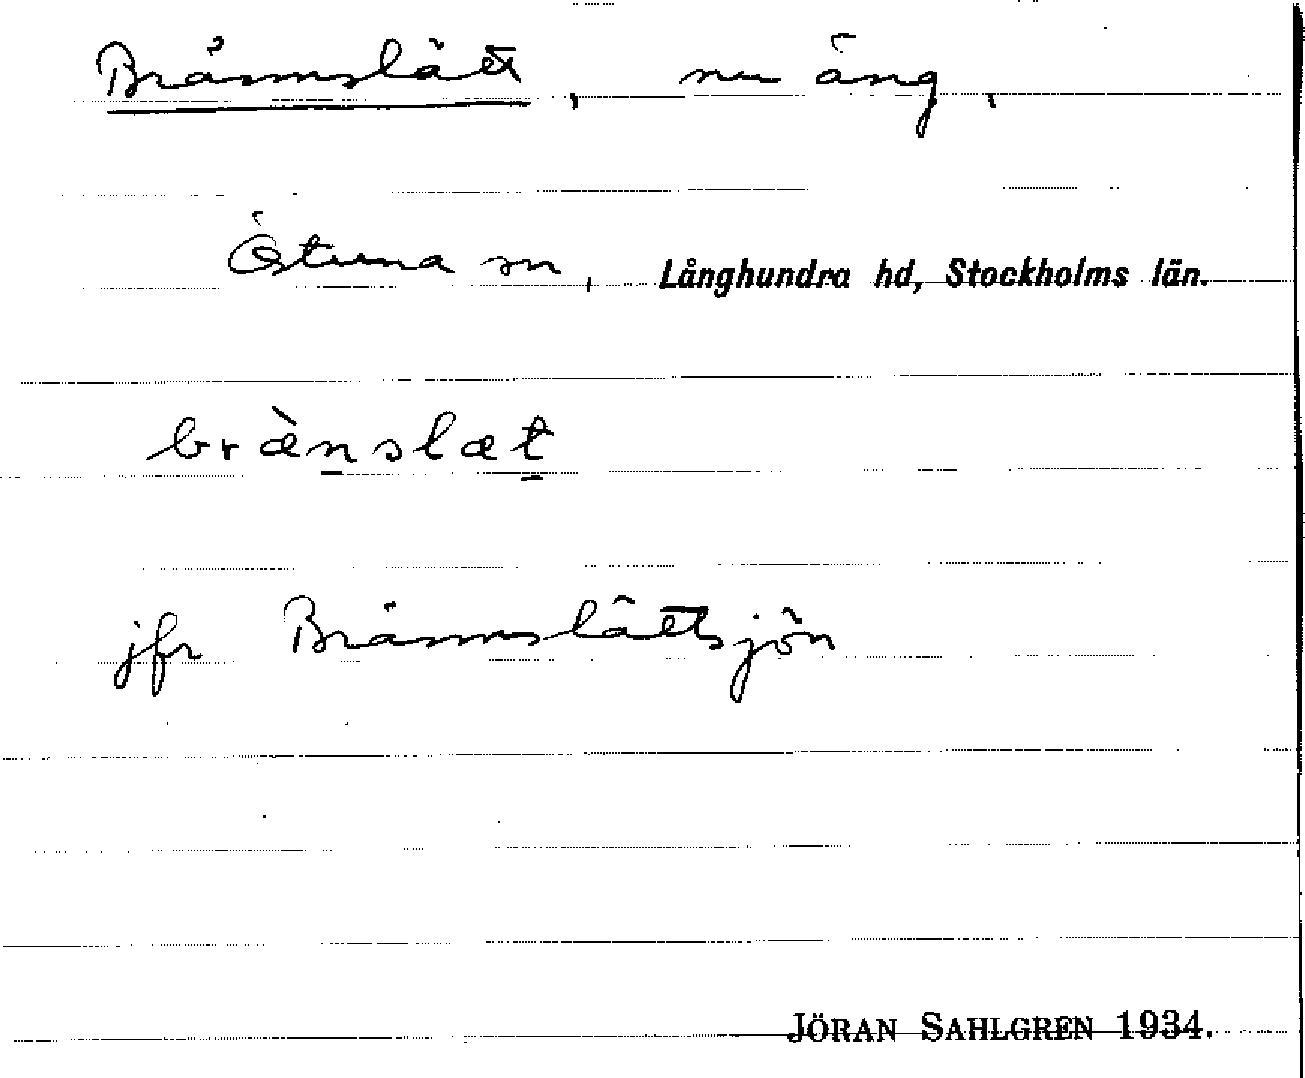 Brännslätt, nu äng,
Östuna sn, Långhundra hd, Stockholms län.
bræ̀nslæt
jfr Brännslättsjön
JÖRAN SAHLGREN 1934.